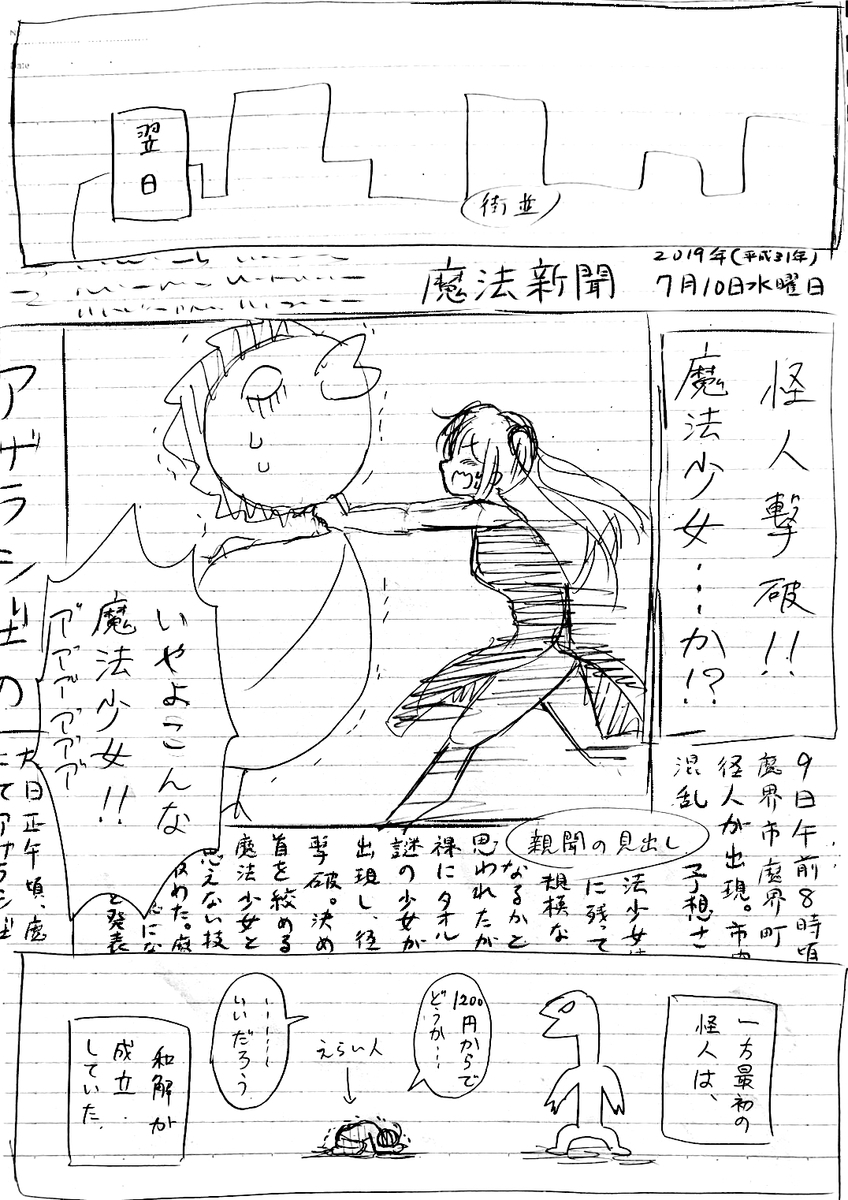 翌日
街並
魔法新聞
2019年(平成31年)
7月10日水曜日
怪人撃破!!
魔法少女…か!?
9日午前8時頃
魔界市魔界町
怪人が出現。市内
混乱
予想さ
法少女
に残って
規模な
なるかと
思われたが
裸にタオル
謎の少女が
出現し、怪
撃破。決め
首を絞める
魔法少女と
思えない技
と発表
親聞の見出し
いやよこんな
魔法少女!!
アザラシ
大日正午頃、魔
にてアザラシ
一方最初の
怪人は、
1200円からで
どうか…
えらい人
……
いいだろう
和解が
成立
していた。